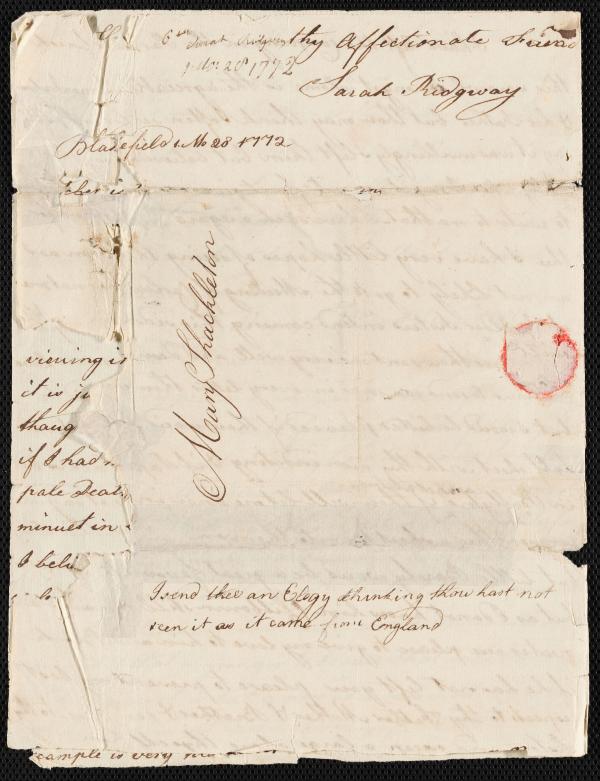 thy Affectionate Friend
Sarah Ridgway
6 Sarah Ridgway
1 Mo: 28 1772
1 Mo 28 1772
Mary Shackleton
viewing is
it is ju
thoug
if I had n
pale Death
minuet in
I beli
I send thee an Elegy thinking thou hast not
seen it as it came from England
example is very